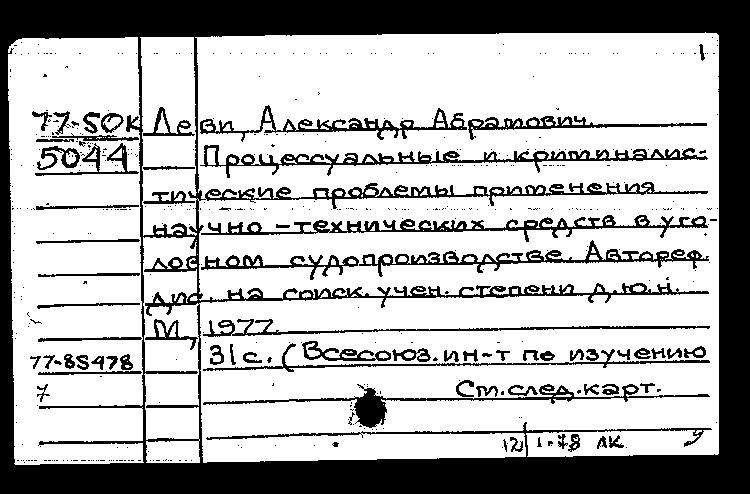 1
77-50К Леви, Александр Абрамович.
5044 Процессуальные и криминалис-
тические проблемы применения
научно-технических средств в уго-
ловном судопроизводстве. Автореф.
дис. на соиск. учен. степени д.ю.н.
М., 1977.
77-85478 31с. (Всесоюз. ин-т по изучению
7 См. след. карт.
12/1-78 ЛК